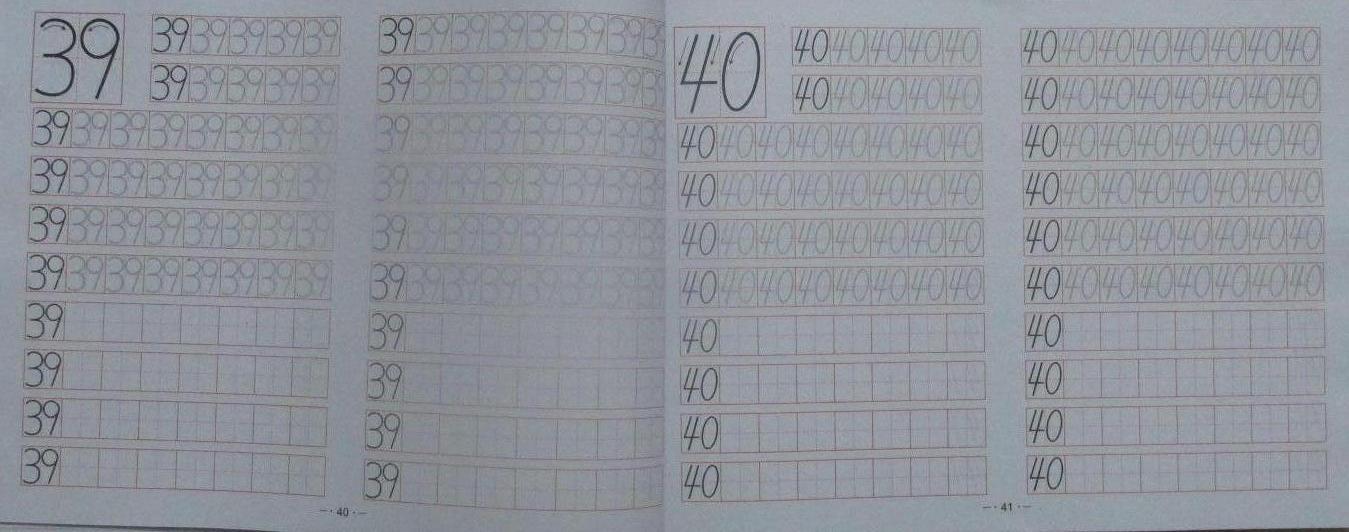 39
39 39 39 39 39
39 39 39 39 39
39 39 39 39 39 39 39 39
39 39 39 39 39 39 39 39
39 39 39 39 39 39 39 39
39 39 39 39 39 39 39 39
39
39
39
39
39 39 39 39 39 39 39 39
39 39 39 39 39 39 39 39
39 39 39 39 39 39 39 39
39 39 39 39 39 39 39 39
39 39 39 39 39 39 39 39
39 39 39 39 39 39 39 39
39
39
39
39
— · 40 · —
40
40 40 40 40 40
40 40 40 40 40
40 40 40 40 40 40 40 40
40 40 40 40 40 40 40 40
40 40 40 40 40 40 40 40
40 40 40 40 40 40 40 40
40
40
40
40
40 40 40 40 40 40 40 40
40 40 40 40 40 40 40 40
40 40 40 40 40 40 40 40
40 40 40 40 40 40 40 40
40 40 40 40 40 40 40 40
40 40 40 40 40 40 40 40
40
40
40
40
— · 41 · —